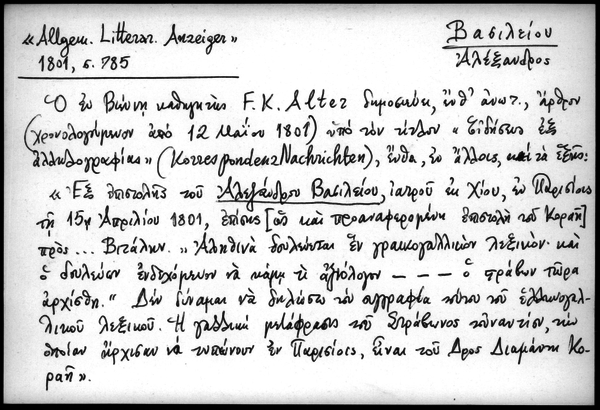 «Allgem. Litterar. Anzeiger»
1801, σ. 785
Βασιλείου
Ἀλέξανδρος
Ὁ ἐν Βιέννῃ καθηγητὴς F. K. Alter δημοσιεύει, ἔνθ' ἀνωτ., ἄρθρον
(χρονολογούμενον ἀπὸ 12 Μαΐου 1801) ὑπὸ τὸν τίτλον «Εἰδήσεις ἐξ
ἀλληλογραφίας» (Korrespondenz Nachrichten), ἔνθα, ἐν ἄλλοις, καὶ τὰ ἑξῆς:
«Ἐξ ἐπιστολῆς τοῦ Ἀλεξάνδρου Βασιλείου, ἰατροῦ ἐκ Χίου, ἐν Παρισίοις
τῇ 15ῃ Ἀπριλίου 1801, ἐπίσης [ὡς καὶ προαναφερομένη ἐπιστολὴ τοῦ Κοραῆ]
πρὸς ... "Ἀληθινὰ δουλεύεται ἓν γραικογαλλικὸν λεξικόν· καὶ
ὁ δουλεύων ἐνδεχόμενον νὰ κάμῃ τι ἀξιόλογον — — — ὁ Στράβων τώρα
ἀρχίσθη." Δὲν δύναμαι νὰ δηλώσω τὸν συγγραφέα τούτου τοῦ ἑλληνογαλ-
λικοῦ λεξικοῦ. Ἡ γαλλικὴ μετάφρασις τοῦ Στράβωνος τοὐναντίον, τὴν
ὁποίαν ἄρχισαν νὰ τυπώνουν ἐν Παρισίοις, εἶναι τοῦ Δρος Διαμάντη Κο-
ραῆ».